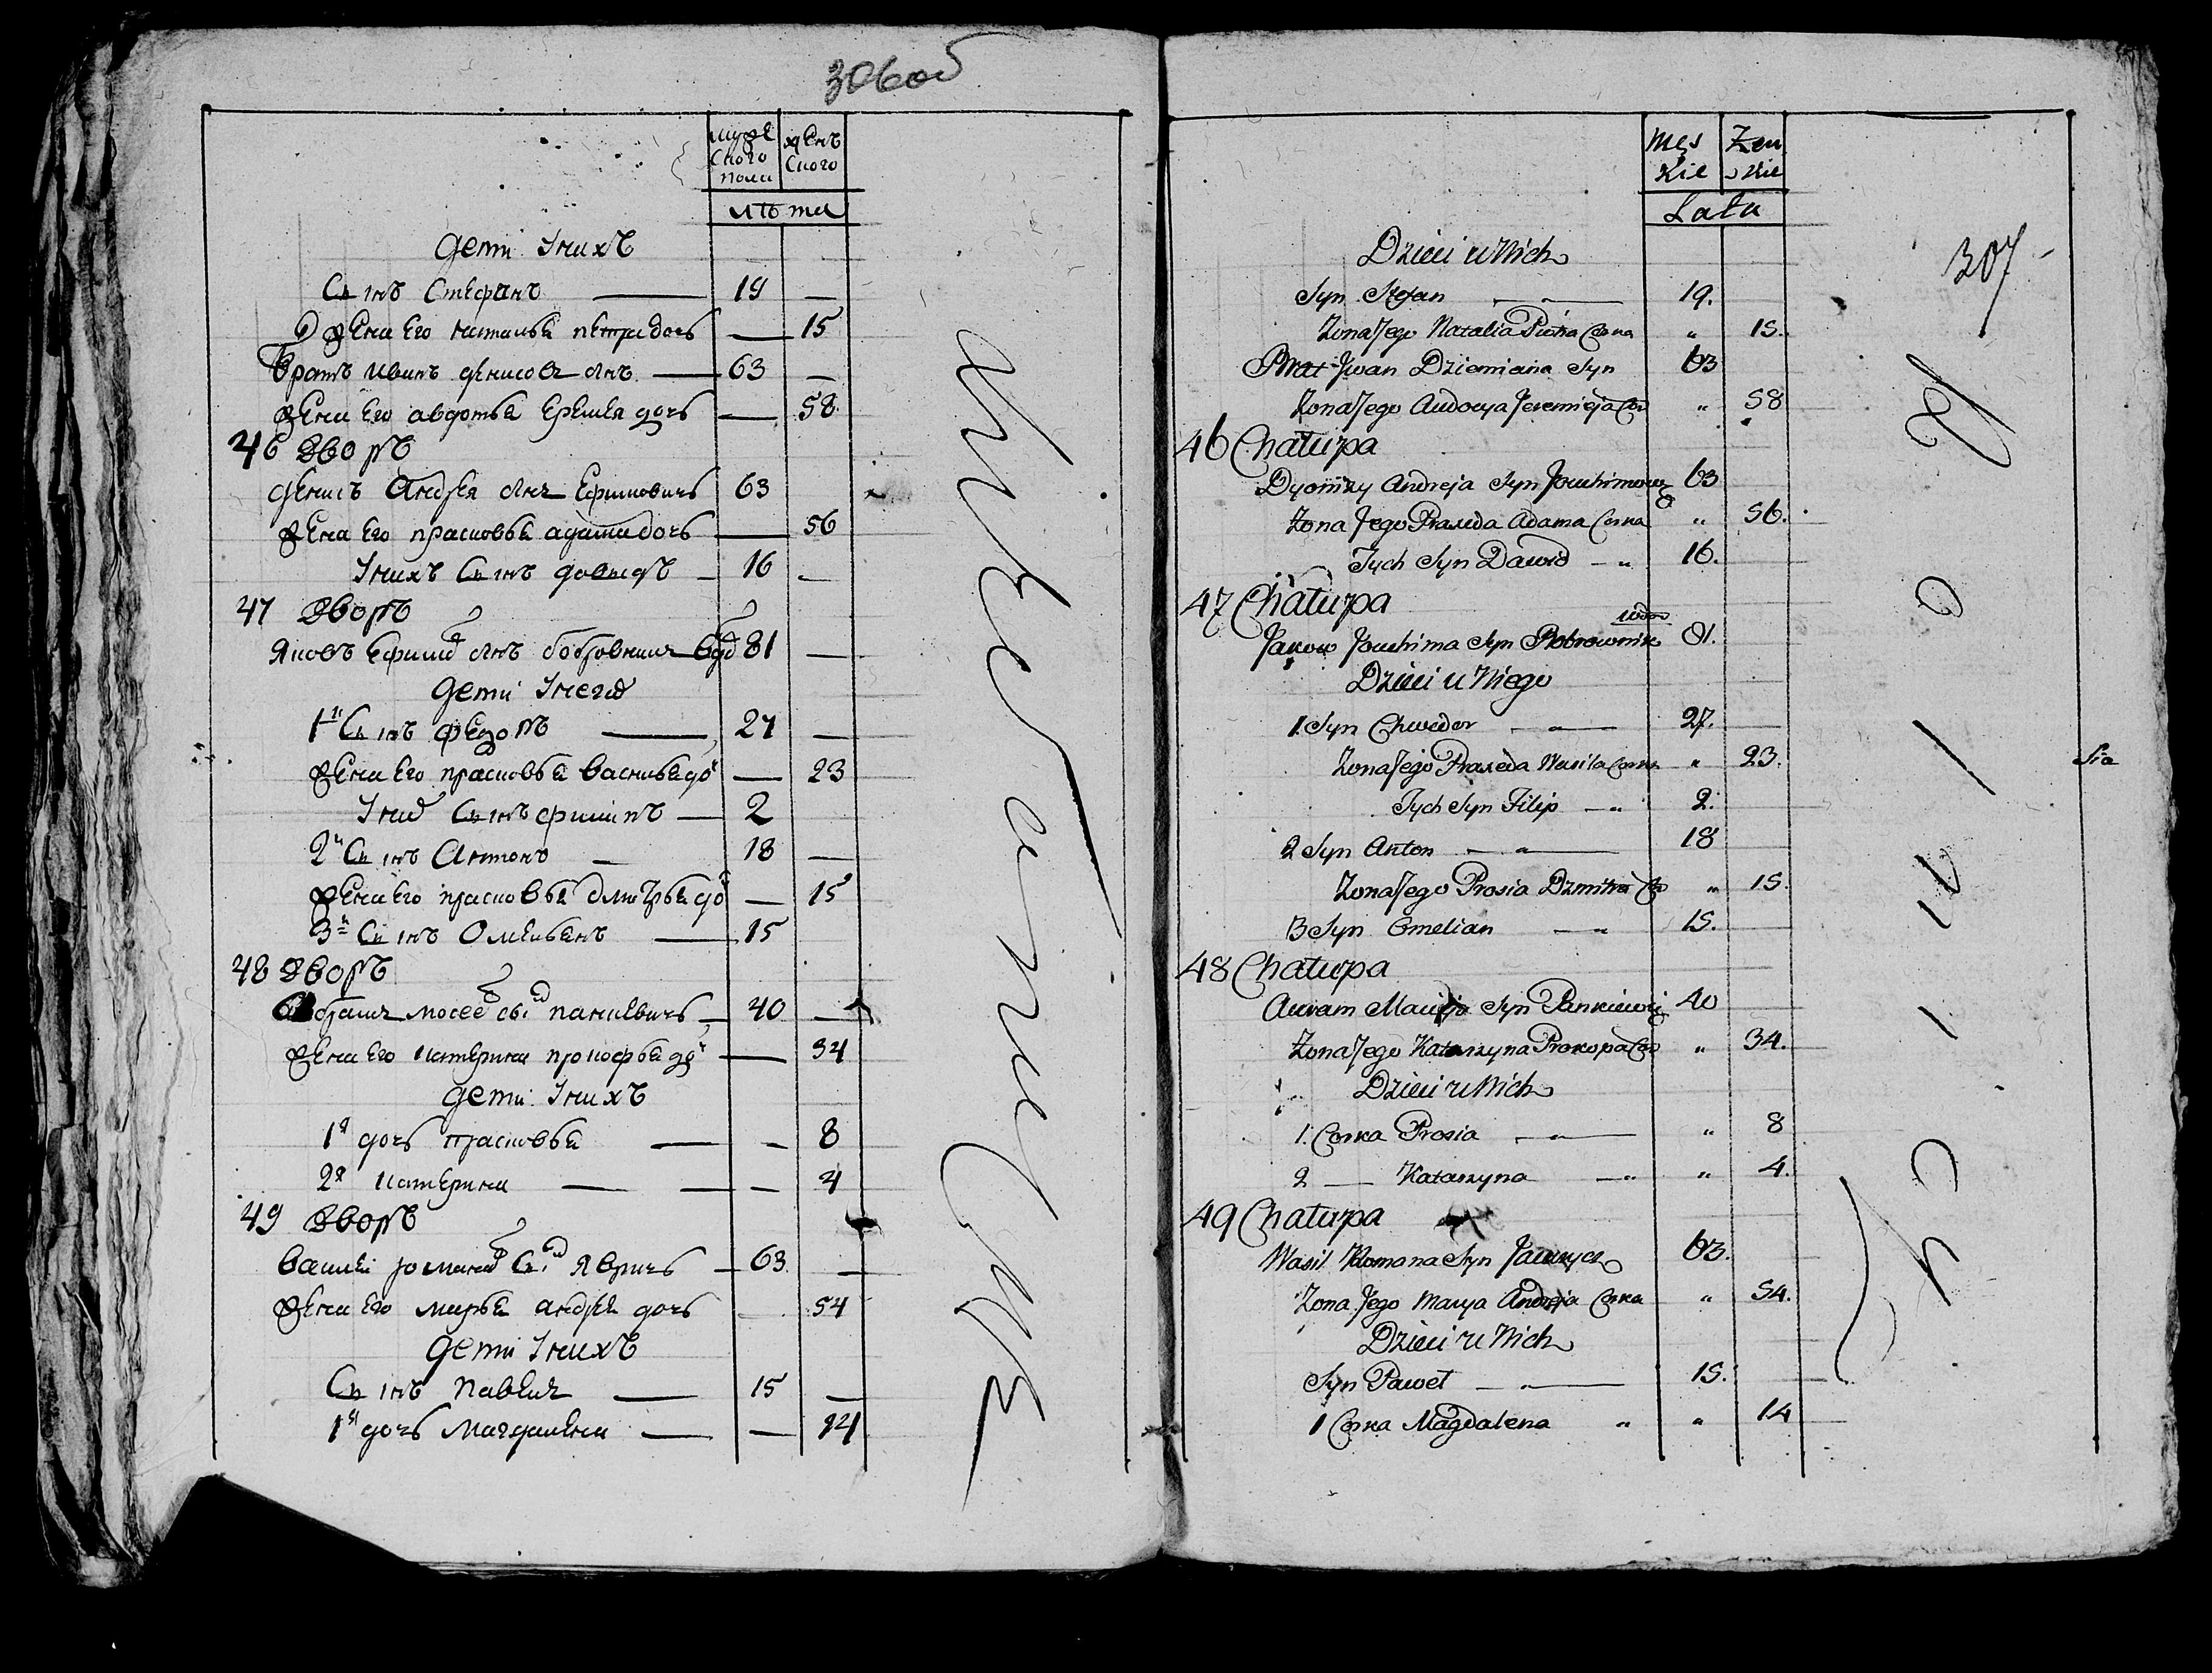 306об
мужеского пола
женского
лѣта
Дети унихъ
Сынъ Стефанъ 19 —
Жена Его наталья петра дочь — 15
братъ иванъ денисовъ сынъ 63 —
Жена Его авдотья Еремея дочь — 58
46 Дворъ
Денисъ Андрея сынъ Ефимовичь 63
Жена Его прасковья адама дочь — 56
Унихъ Сынъ давыдъ 16 —
47 Дворъ
Яковъ Ефима сынъ бобровникъ вдо 81 —
Дети Унего
1й Сынъ федоръ 27 —
Жена Его прасковья василья до — 23
Уних Сынъ филипъ 2
2й Сынъ Антонъ 18 —
Жена Его прасковья дмитрья до — 15
3й Сынъ Омельянъ 15
48 Дворъ
Абрамъ мосея сы панкевичь 40 —
Жена Его катерина прокофья до — 34
Дети Унихъ
1я дочь прасковья — 8
2я катерина — 4
49 Дворъ
василей романа сы Явричь 63 —
Жена Его марья андрея дочь 54
Дети Унихъ
Сынъ Павелъ 15 —
1я дочь Магдалена — 14
307
Męskie
Żenskie
Lata
Dzieci u Nich
Syn Stefan 19.
Zona Jego Natalia Piotra Corka " 15.
Brat Jwan Dziemiana Syn 63
Zona Jego Audocya Jeremieja Cor " 58
46 Chałupa
Dyonizy Andreja Syn Jouchimowicz 63
Zona Jego Praxeda Adama Corka " 56.
Tych Syn Dawid 16.
47 Chałupa
wdo
Jakow Jouchima Syn Bobrownik 81.
Dzieci u Niego
1. Syn Chwedor 27.
Zona Jego Praxeda Wasila Corka " 23.
Tych Syn Filip 2.
2 Syn Anton 18
Zona Jego Prosia Dzmitra Co " 15.
3 Syn Omelian 15.
48 Chałupa
Auram Macieja Syn Pankiewicz 40
Zona Jego Katarzyna Prokopa Cor " 34.
Dzieci u Nich
1. Corka Prosia " 8
2 — Katarzyna " 4.
49 Chałupa
Wasil Romana Syn Jaurycz 63.
Zona Jego Marya Andreja Corka " 54.
Dzieci u Nich
Syn Paweł 15.
1 Corka Magdalena " 14